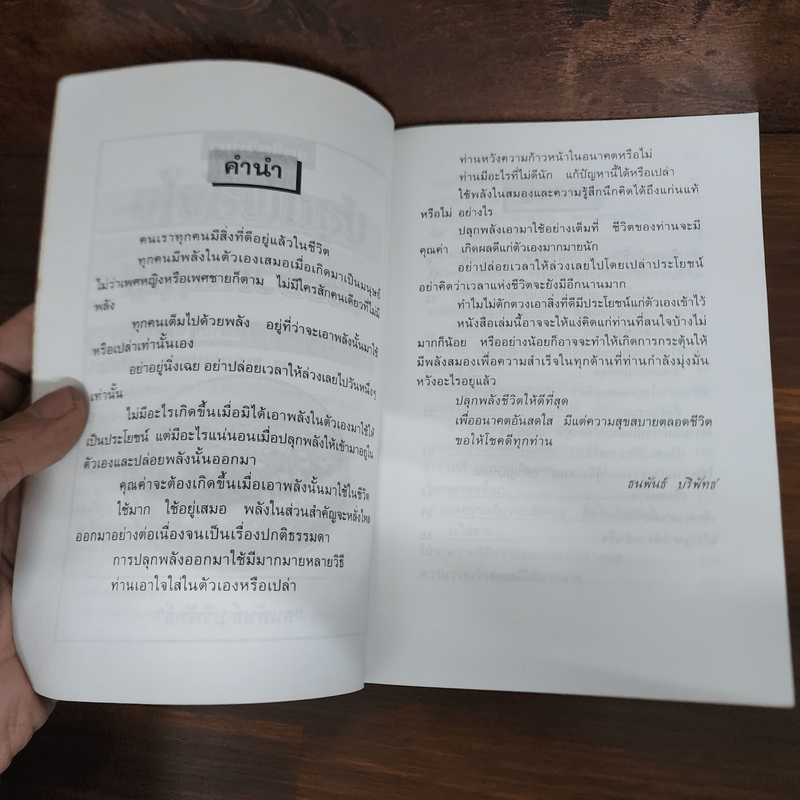 คำนำ
คนเราทุกคนมีสิ่งที่ดีอยู่แล้วในชีวิต
ทุกคนมีพลังในตัวเองเสมอเมื่อเกิดมาเป็นมนุษย์
ไม่ว่าเพศหญิงหรือเพศชายก็ตาม ไม่มีใครสักคนเดียวที่ไม่มี
พลัง
ทุกคนเต็มไปด้วยพลัง อยู่ที่ว่าจะเอาพลังนั้นมาใช้
หรือเปล่าเท่านั้นเอง
อย่าอยู่นิ่งเฉย อย่าปล่อยเวลาให้ล่วงเลยไปวันหนึ่งๆ
เท่านั้น
ไม่มีอะไรเกิดขึ้นเมื่อมิได้เอาพลังในตัวเองมาใช้ให้
เป็นประโยชน์ แต่มีอะไรแน่นอนเมื่อปลุกพลังให้เข้ามาอยู่ใน
ตัวเองและปล่อยพลังนั้นออกมา
คุณค่าจะต้องเกิดขึ้นเมื่อเอาพลังนั้นมาใช้ในชีวิต
ใช้มาก ใช้อยู่เสมอ พลังในส่วนสำคัญจะหลั่งไหล
ออกมาอย่างต่อเนื่องจนเป็นเรื่องปกติธรรมดา
การปลุกพลังออกมาใช้มีมากมายหลายวิธี
ท่านเอาใจใส่ในตัวเองหรือเปล่า
ท่านหวังความก้าวหน้าในอนาคตหรือไม่
ท่านมีอะไรที่ไม่ดีนัก แก้ปัญหานี้ได้หรือเปล่า
ใช้พลังในสมองและความรู้สึกนึกคิดได้ถึงแก่นแท้
หรือไม่ อย่างไร
ปลุกพลังเอามาใช้อย่างเต็มที่ ชีวิตของท่านจะมี
คุณค่า เกิดผลดีแก่ตัวเองมากมายนัก
อย่าปล่อยเวลาให้ล่วงเลยไปโดยเปล่าประโยชน์
อย่าคิดว่าเวลาแห่งชีวิตจะยังมีอีกนานมาก
ทำไมไม่ตักตวงเอาสิ่งที่ดีมีประโยชน์แก่ตัวเองเข้าไว้
หนังสือเล่มนี้อาจจะให้แง่คิดแก่ท่านที่สนใจบ้างไม่
มากก็น้อย หรืออย่างน้อยก็อาจจะทำให้เกิดการกระตุ้นให้
มีพลังสมองเพื่อความสำเร็จในทุกด้านที่ท่านกำลังมุ่งมั่น
หวังอะไรอยู่แล้ว
ปลุกพลังชีวิตให้ดีที่สุด
เพื่ออนาคตอันสดใส มีแต่ความสุขสบายตลอดชีวิต
ขอให้โชคดีทุกท่าน
ธนพันธ์ ปริพัทธ์